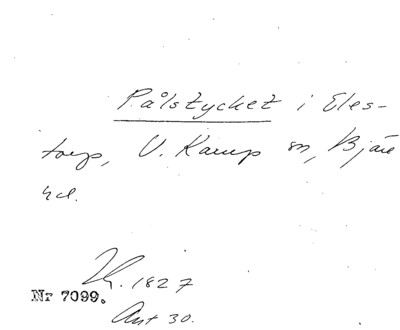 Pålstycket i Eles-
torp, V. Karup sn, Bjäre
hd.
1827
Nr 7099.
Ant 30.